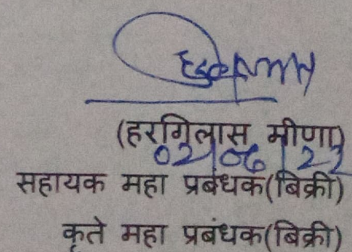 (हरगिलास मीणा)
02/06/23
सहायक महा प्रबंधक(बिक्री)
कृते महा प्रबंधक(बिक्री)